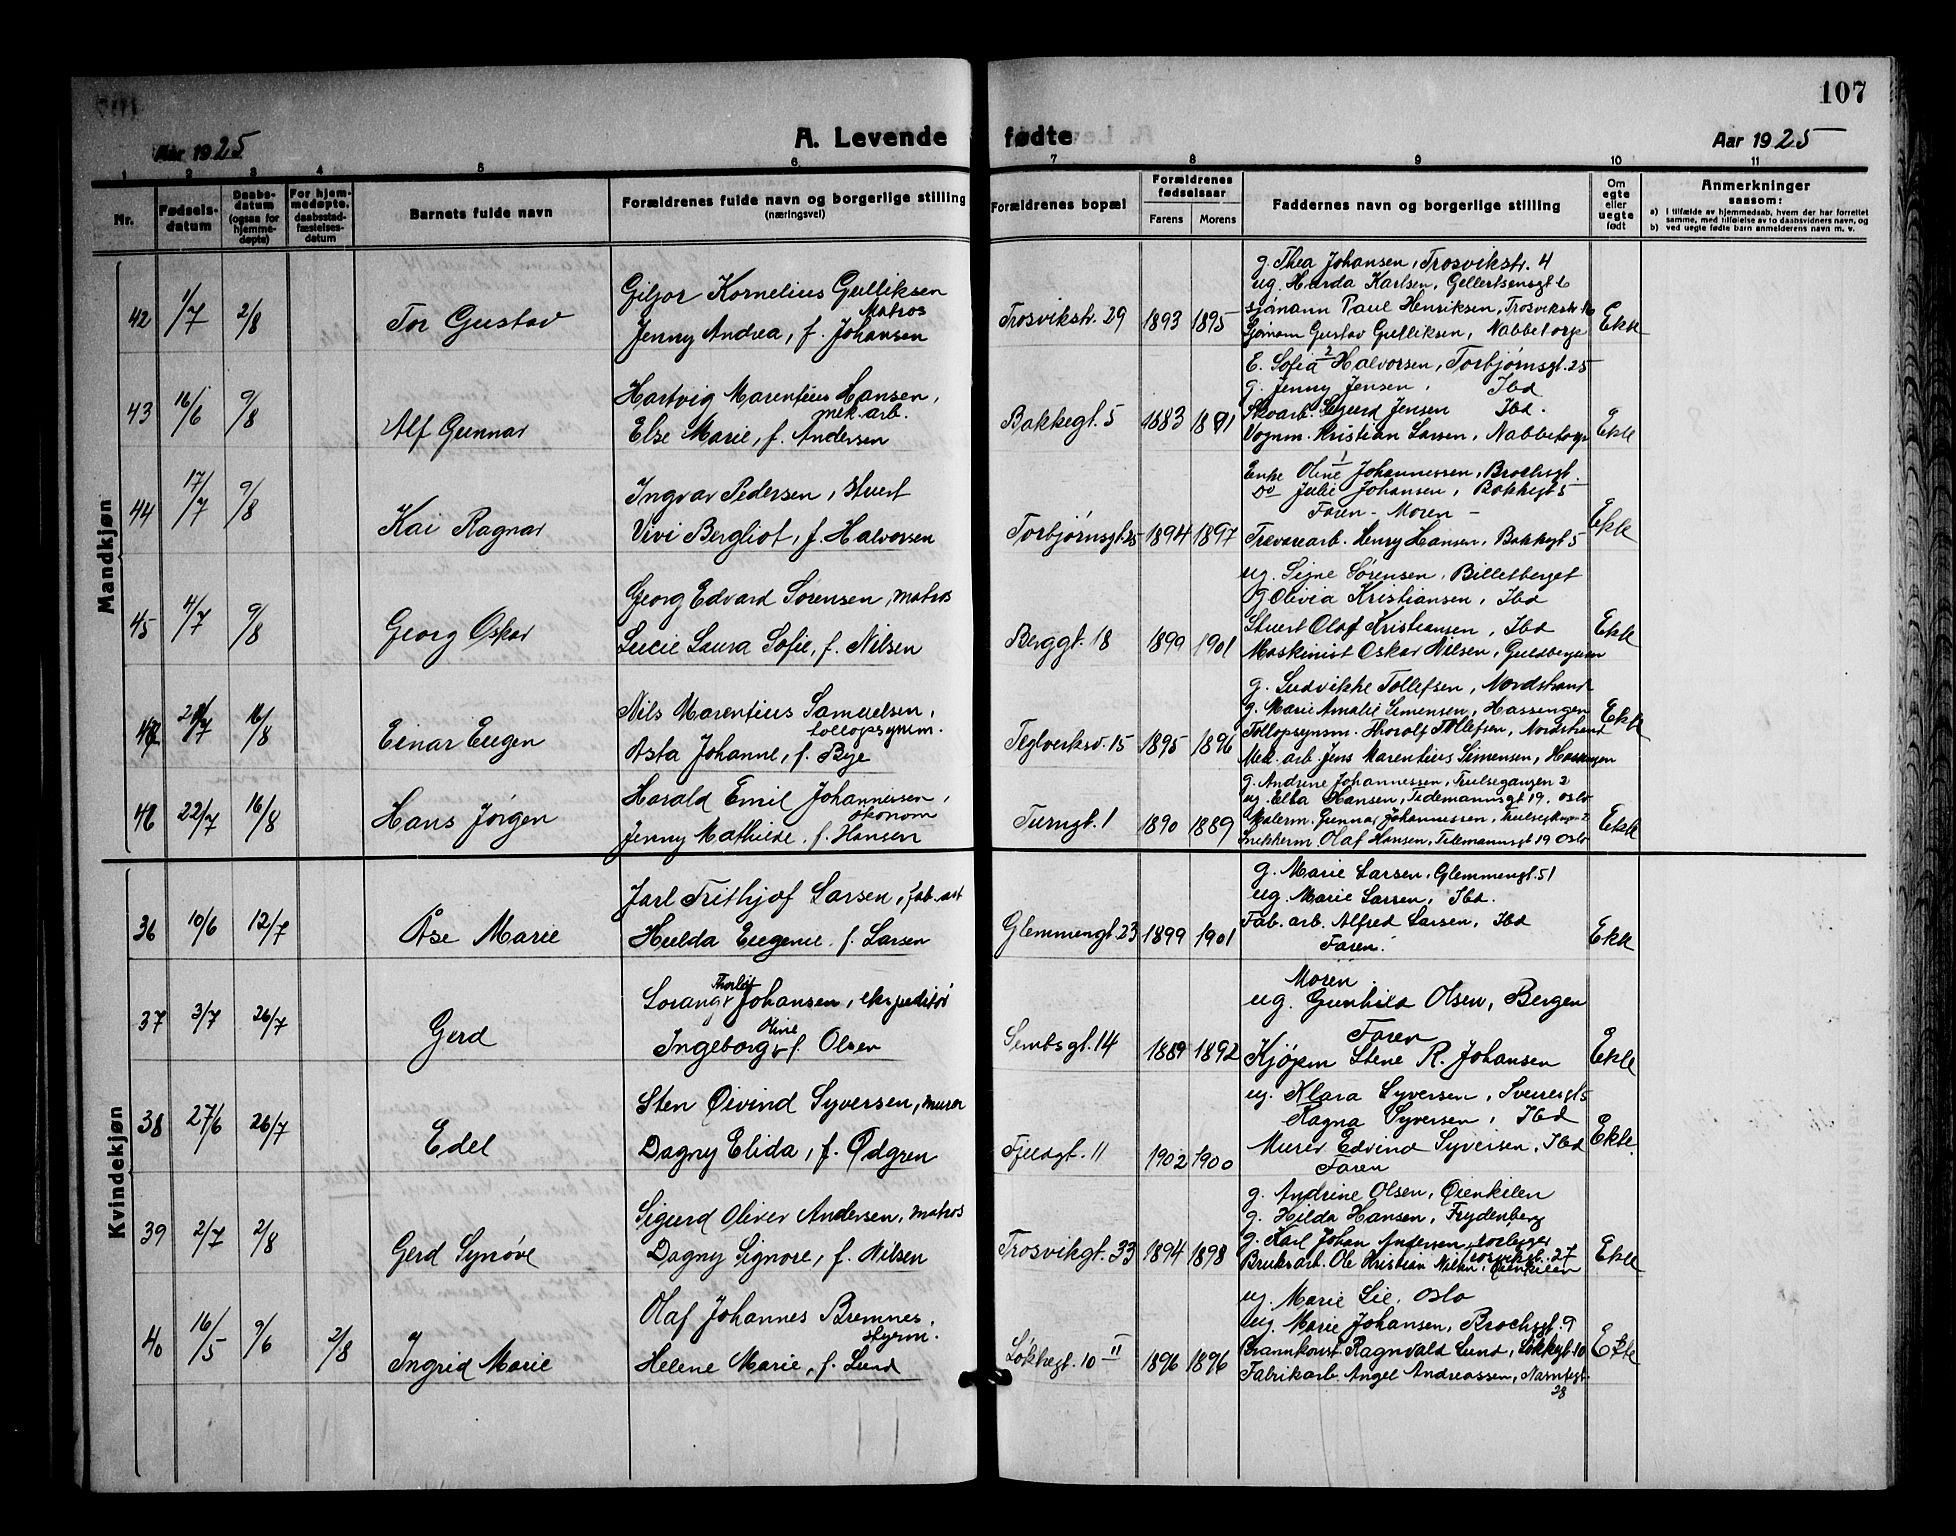 107
Aar 1925
A. Levende fødte
Aar 1925
1 2 3 4 5 6 7 8 9 10 11
Nr.
Fødsels-
datum
Daabs-
datum
(ogsaa for
hjemme-
døpte)
For hjem-
medøpte,
daabsstad-
fæstelses-
datum
Barnets fulde navn
Forældrenes fulde navn og borgerlige stilling
(næringsvei)
Forældrenes bopæl
Forældrenes
fødselsaar
Farens Morens
Faddernes navn og borgerlige stilling
Om
egte
eller
uegte
født
Anmerkninger
saasom:
a) I tilfælde av hjemmedaab, hvem der har forrettet
samme, med tilføielse av to daabsvidners navn, og
b) ved uegte fødte barn anmelderens navn m. v.
Mandkjøn
42 1/7 2/8 Tor Gustav
Giljor Kornelius Gulliksen
Matros
Jenny Andrea, f. Johansen
Trosvikstr. 29 1893 1895
g. Thea Johansen, Trosvikstr. 4
ug. Harda Karlsen, Gellertsensgt 6
sjømann Paul Henriksen, Trosvikstr
Sjømann Gustav Gulliksen, Nabbetorp
Ekte
43 16/6 9/8 Alf Gunnar
Hartvig Marentius Hansen,
mek. arb.
Else Marie, f. Andersen
Bakkegt. 5 1883 1891
E. Sofia Halvorsen, Torbjørnsgt. 25
g. Jenny Jensen, Ibd
Skoarb. Sigurd Jensen Ibd.
Vognm. Kristian Larsen, Nabbetorp
Ekte
44 17/7 9/8 Kai Ragnar
Ingvar Pedersen, Stuert
Vivi Bergliot, f. Halvorsen
Torbjørnsgt. 25 1894 1897
Enke Oline Johannessen, Brochsgt.
Do Julie Johansen, Bakkegt 5
Faren - Moren -
Trævarearb. Henry Hansen, Bakkegt 5
Ekte
45 4/7 9/8 Georg Oskar
Georg Edvard Sørensen, matros
Lucie Laura Sofie, f. Nilsen
Berggt. 18 1899 1901
ug. Signe Sørensen, Billetberget
g Olivia Kristiansen, Ibd
Stuert Olaf Kristiansen, Ibd
Maskinist Oskar Nilsen, Guldbergveien
Ekte
16/8 Einar Eugen
Nils Marentius Samuelsen,
tollopsynsm.
Asta Johanne, f. Bye
Teglverksv. 15 1895 1896
g. Ludvikke Tollefsen, Nordstrand
g. Marie Amalie Simensen, Hassingen
Tollopsynsm. Thorolf Tollefsen, Nordstrand
Mek. arb. Jens Marentius Simensen, Hassingen
Ekte
46 22/7 16/8 Hans Jørgen
Harald Emil Johannessen,
økonom
Jenny Mathilde, f. Hansen
Turngt. 1 1890 1889
g. Andrine Johannessen, Trulsegangen 2
ug. Elba Hansen, Tidemannsgt 19, Oslo
Malerm. Gunnar Johannessen, Trulsegangen 2
Snekkerm. Olaf Hansen, Tidemannsgt 19 Oslo
Ekte
Kvindekjøn
36 10/6 12/7 Åse Marie
Jarl Frithjof Larsen, fab. arb
Hulda Eugenie, f. Larsen
Glemmengt. 23 1899 1901
g. Marie Larsen, Glemmengt. 51
ug. Marie Larsen, Ibd.
Fab. arb. Alfred Larsen, Ibd
Faren.
Ekte
37 3/7 26/7 Gerd
Thorleif
Sorang Johansen, ekspeditør
Oline
Ingeborg, f. Olsen
Sembsgt. 14 1889 1892
Moren.
ug. Gunhild Olsen, Bergen
Faren
Kjøpm Stene R. Johansen
Ekte
38 27/6 26/7 Edel
Sten Øivind Syversen, murer
Dagny Elida, f. Ødgren
Fjeldgt. 11 1902 1900
ug. Klara Syversen, Sverregt 5
Ragna Syversen, Ibd
Murer Edvind Syversen, Ibd
Faren
Ekte.
39 2/7 2/8 Gerd Synøve
Sigurd Oliver Andersen, matros
Dagny Signore, f. Nilsen
Trosvikgt. 33 1894 1898
g. Andrine Olsen, Øienkilen
g. Hilda Hansen, Frydenberg
g. Karl Johan Andersen,
Trosvikgt. 27
Bruksarb. Ole Kristian Nilsen, Øienkilen
Ekte
40 16/5 9/6 2/8 Ingrid Marie
Olaf Johannes Bremnes,
styrm.
Helene Marie, f. Lund
Løkkegt. 10 II 1896 1896
ug. Marie Lie, Oslo
ug. Marie Johansen, Brochsgt. 9
Brannkonst Ragnvald Lund, Løkkegt 10
Fabrikarb. Angel Andreassen,
28
Ekte